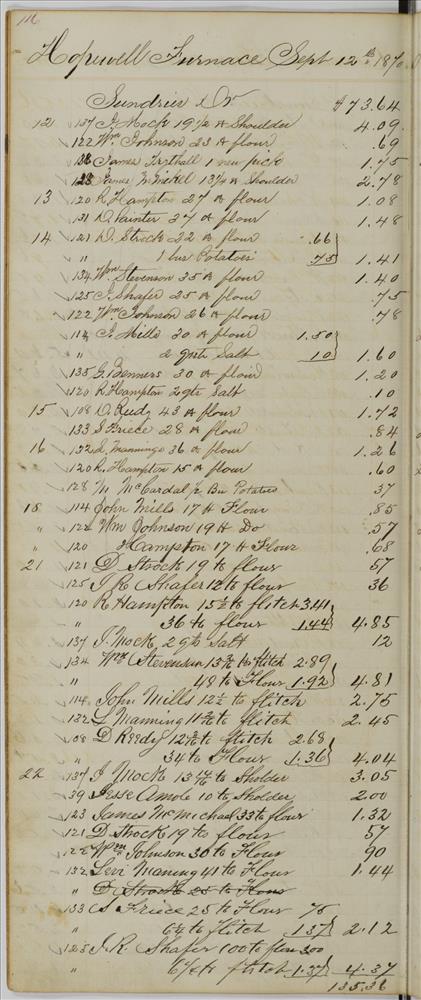 116
Hopewell Furnace Sept 12th 1870
Sundries Dr $73.64
12 137 J. Mock 19 1/2 lb Shoulder 4.09
122 Wm Johnson 23 lb flour .69
James 1 new pick 1.75
128 James 13 1/4 lb Shoulder 2.78
13 120 R. Hampton 27 lb flour 1.08
131 D. Painter 37 lb flour 1.48
14 121 D. Strock 22 lb flour .66
" 1 bus Potatoes .75 1.41
134 Wm Stevenson 35 lb flour 1.40
125 J. Shafer 25 lb flour .75
122 Wm Johnson 26 lb flour .78
114 J. Mills 30 lb flour 1.50
" 2 qts Salt 10 1.60
135 G. Benners 30 lb flour 1.20
120 R. Hampton 2 qts Salt .10
15 108 D. Reedy 43 lb flour 1.72
133 S. Friece 28 lb flour .84
16 132 L. Mannings 36 lb flour 1.26
120 R. Hampton 15 lb flour .60
128 M McCardal 1/2 Bu Potatoes 37
18 114 John Mills 17 lb Flour .85
" 122 Wm Johnson 19 lb Do .57
" 120 Hampton 17 lb Flour .68
21 121 D Strock 19 lb flour 57
125 J R Shafer 12 lb flour 36
120 R Hampton 15 1/2 lb flitch 3.41
" 36 lb flour 1.44 4.85
137 J. Mock 2 qts Salt 12
134 Wm Stevenson lb flitch 2.89
" 48 lb Flour 1.92 4.81
114 John Mills 12 1/2 lb flitch 2.75
132 L Manning lb flitch 2.45
108 D Reedy lb flitch 2.68
" 34 lb Flour 1.36 4.04
22 137 J Mock lb Sholder 3.05
39 Jesse Amole 10 lb Sholder 2.00
123 James McMichael 33 lb flour 1.32
121 D Strock 19 lb flour 57
122 Wm Johnson 30 lb Flour 90
132 Levi Maning 41 lb Flour 1.44
" D. Strock 25 lb Flour
133 S Friece 25 lb Flour 75
" 6 1/4 lb Flitch 1.37 2.12
125 J. R Shafer 100 lb flour 3.00
" 6 1/4 lb flitch 1.37 4.37
135.36